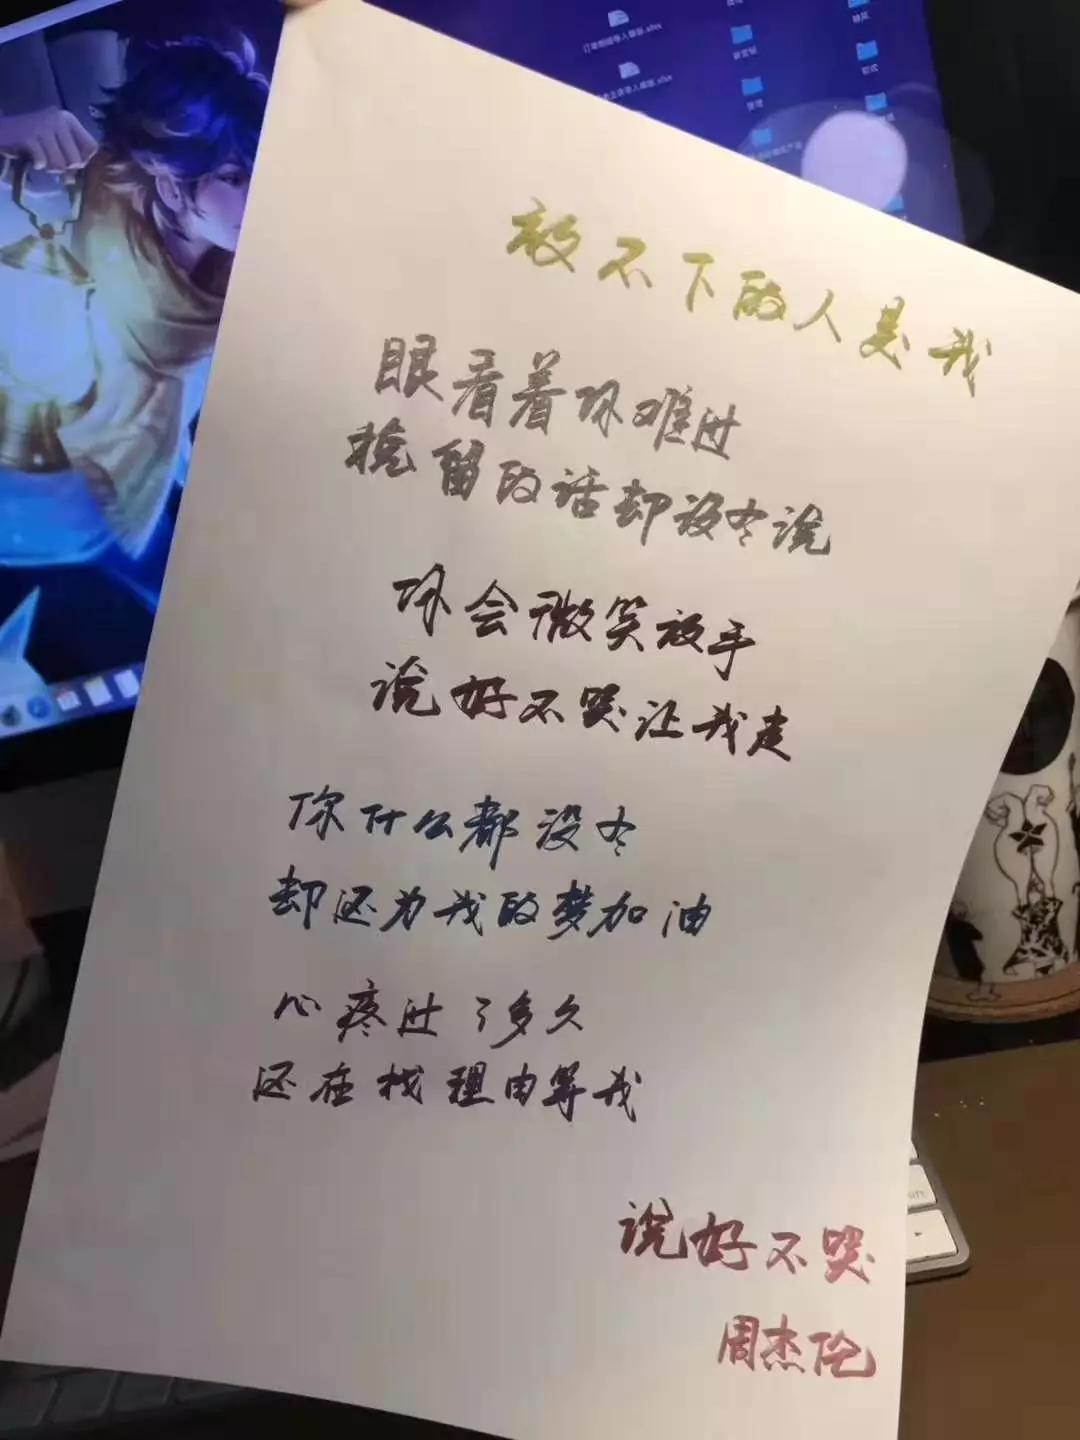 放不下的人是我
眼看着你难过
挽留的话却没有说
你会微笑放手
说好不哭让我走
你什么都没有
却还为我的梦加油
心疼过了多久
还在找理由等我
说好不哭
周杰伦